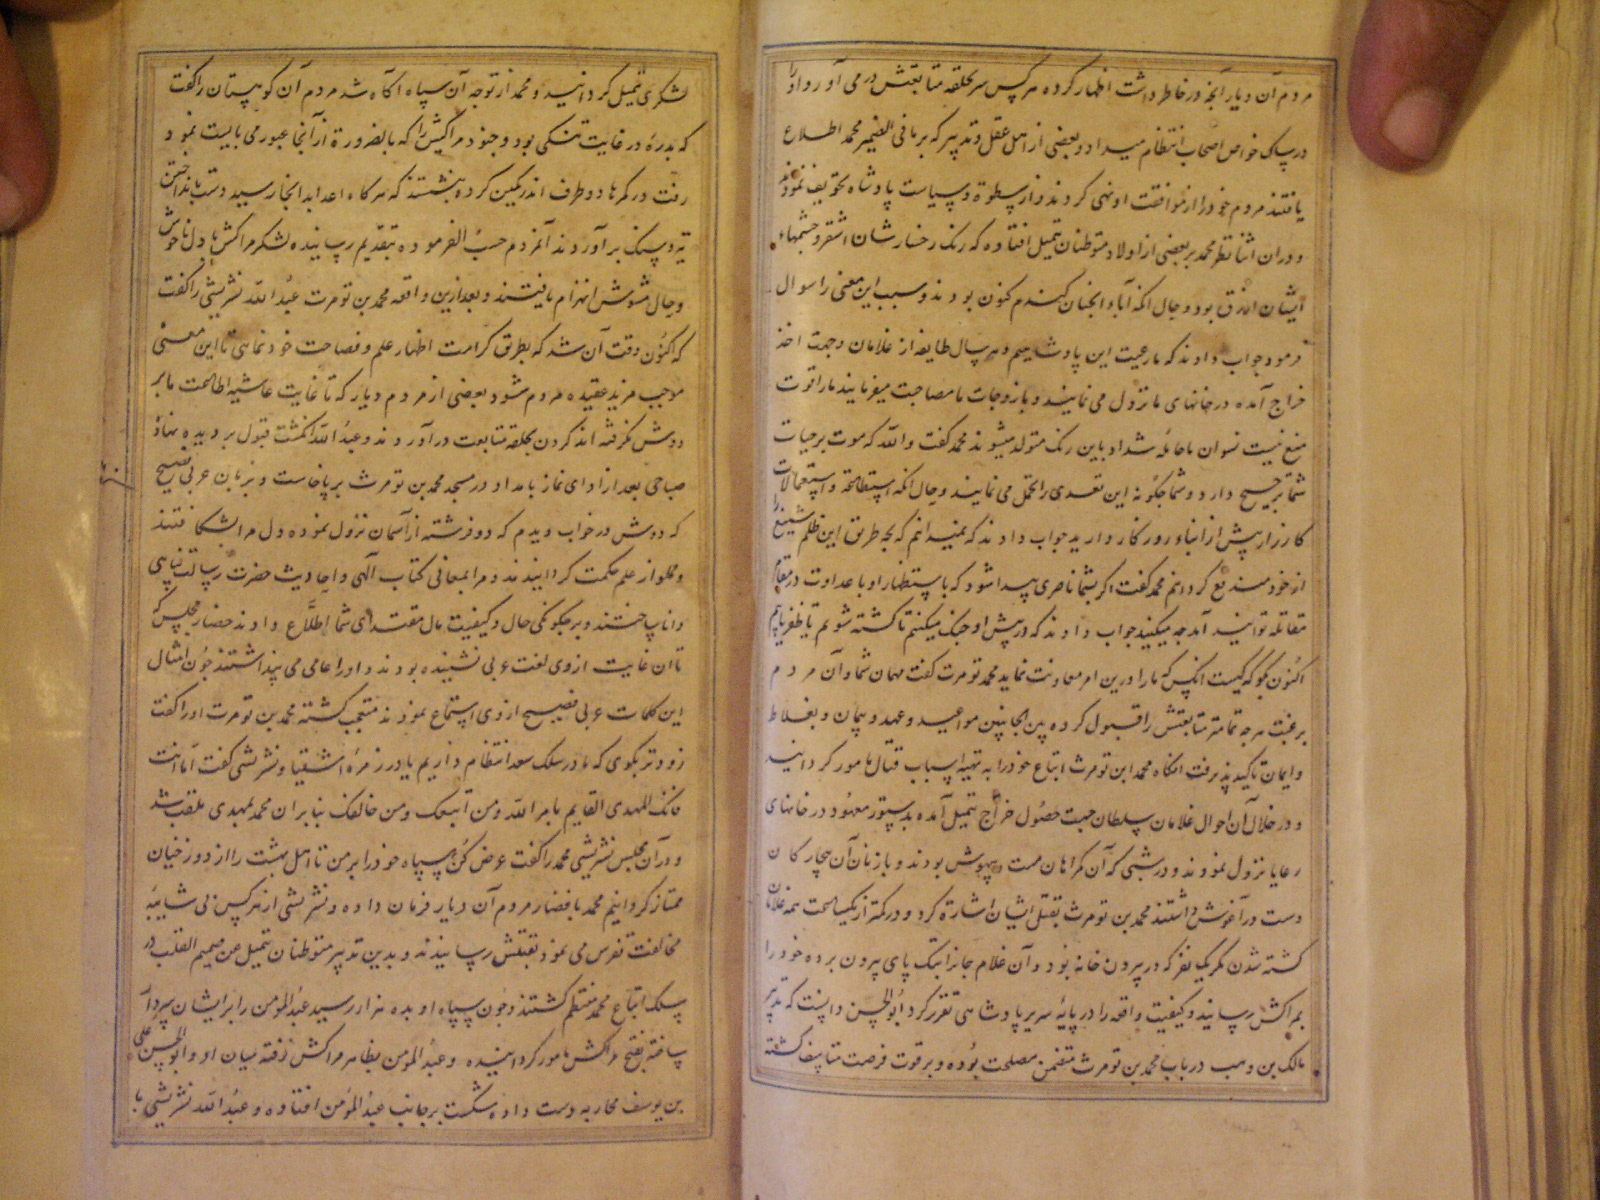 مردم آن دیار آنچه در خاطر داشت اظهار کرده هر کس سر بحلقه متابعتش در می آورد او را
در سلک خواص اصحاب انتظام میداد و بعضی از اهل عقل و تدبیر که بر ما فی الضمیر محمد اطلاع
یافتند مردم خود را از موافقت او نهی کردند و از سطوة و سیاست پادشاه تخویف نمودند
و در ان اثنا نظر محمد بر بعضی از اولاد متوطنان تنمیل افتاده که رنک رخسارشان اشقر و چشمهاء
ایشان ازرق بود و حال آنکه آباء ایشان کندم کون بودند و سبب این معنی را سوال
فرمود جواب دادند که ما رعیت این پادشاهیم و هر سال طایفه از غلامان او جهت اخذ
خراج آمده در خانهای ما نزول می نمایند و با زوجات ما مصاحبت میفرمایند ما را قوت
منع نیست نسوان ما حامله شده اولاد باین رنک متولد میشوند محمد کفت والله که موت بر حیات
شما ترجیح دارد و شما چکونه این تعدی را تحمل می نمایید و حال آنکه استطاعت و استعمال آلات
کارزار پیش از ابناء روزکار دارید جواب دادند که نمیدانیم که بچه طریق این ظلم شنیع را
از خود مندفع کردانیم محمد کفت اکر شما را ناصری پیدا شود که باستظهار او با عداوت در مقام
مقاتله توانید آمد چه میکنید جواب دادند که در پیش او جنک میکنیم تا کشته شویم یا ظفر یابیم
اکنون بکو که کیست آنکس که ما را درین امر معاونت نماید محمد تومرت کفت مهمان شما و آن مردم
برغبت هر چه تمامتر متابعتش را قبول کرده بین الجانبین مواعید و عهد و پیمان و بغلاظ
و ایمان تاکید پذیرفت آنکاه محمد ابن تومرت اتباع خود را به تهیه اسباب قتال مامور کردانید
و در خلال آن احوال غلامان سلطان جهت حصول خراج بتنمیل آمده بدستور معهود در خانهای
رعایا نزول نمودند و در شبی که آن کمراهان مست و بیهوش بودند و با زنان آن بیچارکان
دست در آغوش داشتند محمد بن تومرت بقتل ایشان اشارة کرد و در کمتر از یکساعت همه غلامان
کشته شدند مکر یک نفر که در بیرون خانه بود و آن غلام بجانب بتک پای بیرون برده خود را
بمراکش رسانید و کیفیت واقعه را در پایه سریر پادشاهی تقریر کرد ابو الحسن دانست که تدبیر
مالک بن وهب در باب محمد بن تومرت متضمن مصلحت بوده و بر فوت فرصت متاسف کشته
لشکری بتنمیل کردانید و محمد از توجه آن سپاه آکاه شد مردم آن کوهستان را کفت
که بدرهٔ در غایت تنکی بود و جنود مراکش را که بالضرورة از آنجا عبور می بایست نمود
رفت در کمرها دو طرف اندر کمین کرده بنشستند که هر کاه اعدا بدانجا رسید دست بانداختن
تیر و سنک برآورند آنمردم حسب الفرموده بتقدیم رسانیده لشکر مراکش با دل ناخوش
و حال مشوش انهزام یافتند و بعد ازین واقعه محمد بن تومرت عبد الله نشریشی را کفت
که اکنون وقت آن شد که بطریق کرامت اظهار علم و فصاحت خود نمایی تا این معنی
موجب مزید عقیده مردم شود و بعضی از مردم دیار که تا غایت غاشیه اطاعت ما بر
دوش نکرفته اند کردن بحلقه متابعت درآورند و عبد الله انکشت قبول بر دیده نهاده
صباحی بعد از ادای نماز بامداد در مسجد محمد بن تومرت بر پا خاست و بزبان عربی فصیح
که دوش در خواب دیدم که دو فرشته از آسمان نزول نموده دل مرا بشکافتند
و مملو از علم حکمت کردانیدند و مرا بمعانی کتاب آلهی و احادیث حضرت رسالت پناهی
دانا ساختند و بر چکونکی حال و کیفیت مآل مقتدای شما اطلاع دادند حضار مجلس که
تا ان غایت از وی لغت عربی نشنیده بودند و او را عامی می پنداشتند چون امثال
این کلمات عربی فصیح از وی استماع نمودند متعجب کشته محمد بن تومرت او را کفت
زودتر بکوی که ما در سلک سعدا انتظام داریم یا در زمرهٔ اشقیا و نشریشی کفت اما انت
فانک المهدی القایم بامر الله و من اتبعک و من خالفک بنابران محمد بمهدی ملقب شد
و در آن مجلس نشریشی محمد را کفت عرض کن سپاه خود را بر من تا اهل بهشت را از دوزخیان
ممتاز کردانیم محمد باحضار مردم آن دیار فرمان داده و نشریشی از هر کس بی شایبهٔ
مخالفت تفرس می نمود بقتلش رسانیدند و بدین تدبیر متوطنان تنمیل من صمیم القلب در
سلک اتباع محمد منتظم کشتند و چون سپاه او بده هزار رسید عبد المومن را بر ایشان سردار
ساخته بفتح مراکش مامور کردانیده و عبد المومن بظاهر مراکش رفته میان او و ابو الحسن علی
بن یوسف محاربه دست داده شکست بر جانب عبد المومن افتاده و عبد الله نشریشی با